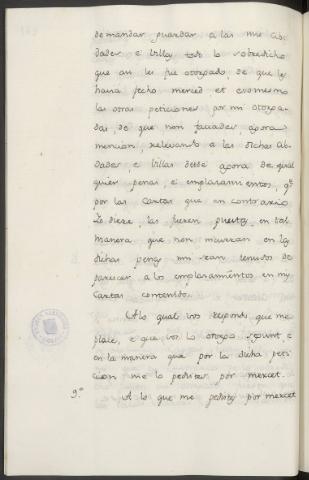 demandar guardar a las mis Cib-
dades e Villas todo lo sobredicho
que an les fue otorgado, de que les
havia fecho merced et eso mesmo
las otras peticiones por mi otorga-
das, de que non facades, agora
mencion, relevando a las dichas Cib-
dades, e Villas desde agora de qual
quier penas, e emplazamientos, qe
por las Cartas que en contrario
se diese, las fueren puestas, en tal
manera, que non incurran en las
dichas penas nin sean tenudos de
parecer a los emplazamientos en mis
Cartas contenido.
A lo qual vos respondo que me
place, e que vos lo otorgo segunt, e
en la manera que por la dicha peti
cion me lo pedistes por mercet.
9.º A lo que me pedistes por mercet